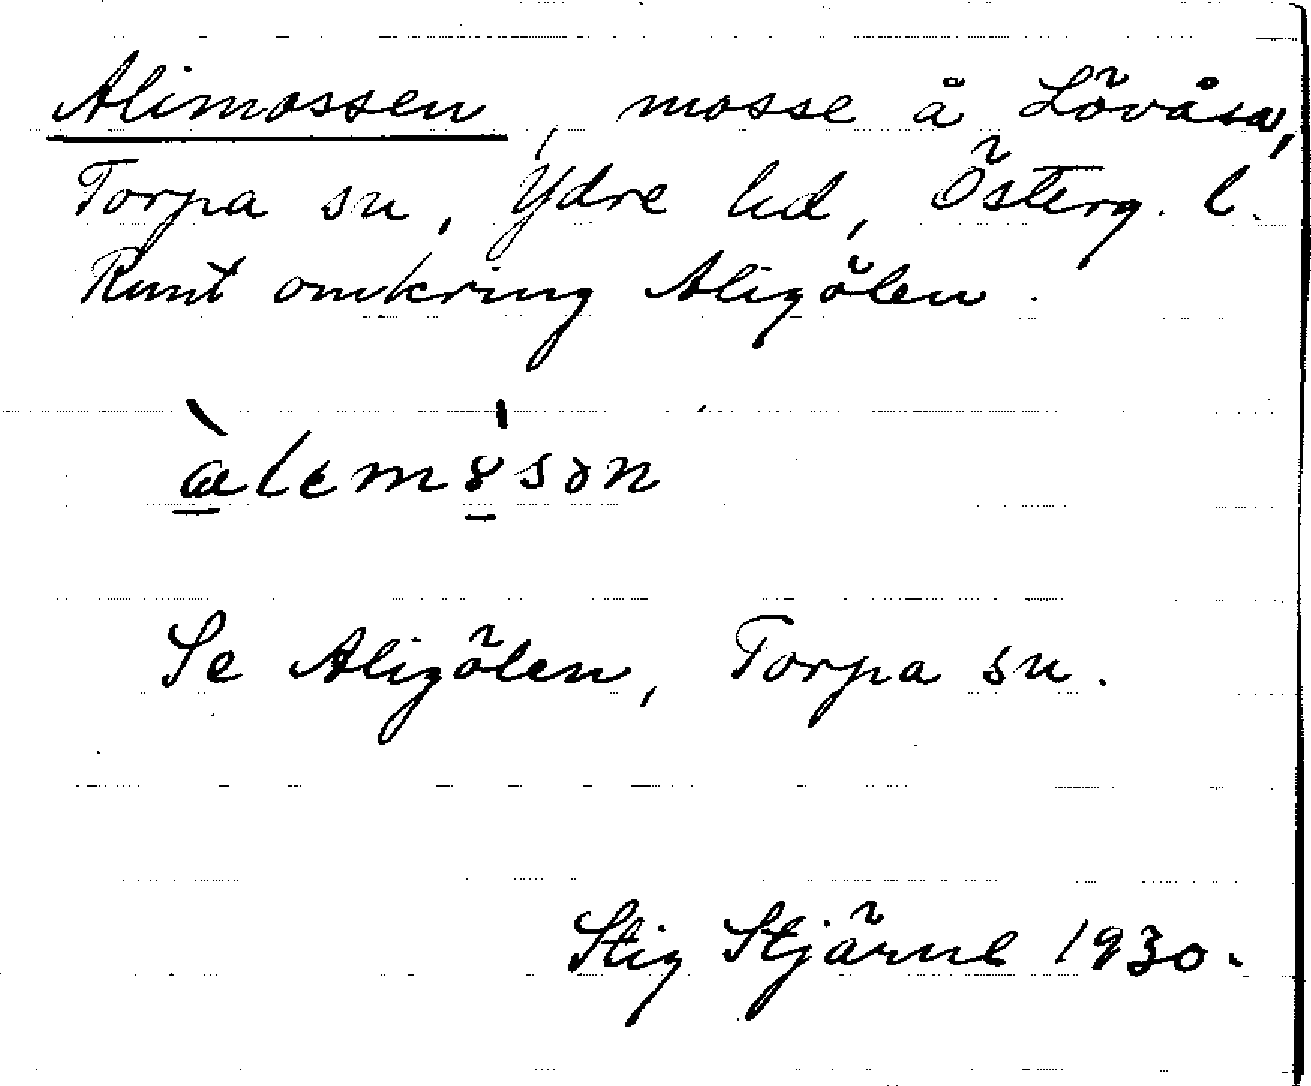 Alimossen, mosse å Lövåsa,
Torpa sn, Ydre hd, Österg. l.
Runt omkring Aligölen.
Se Aligölen, Torpa sn.
Stig Stjärne 1930.